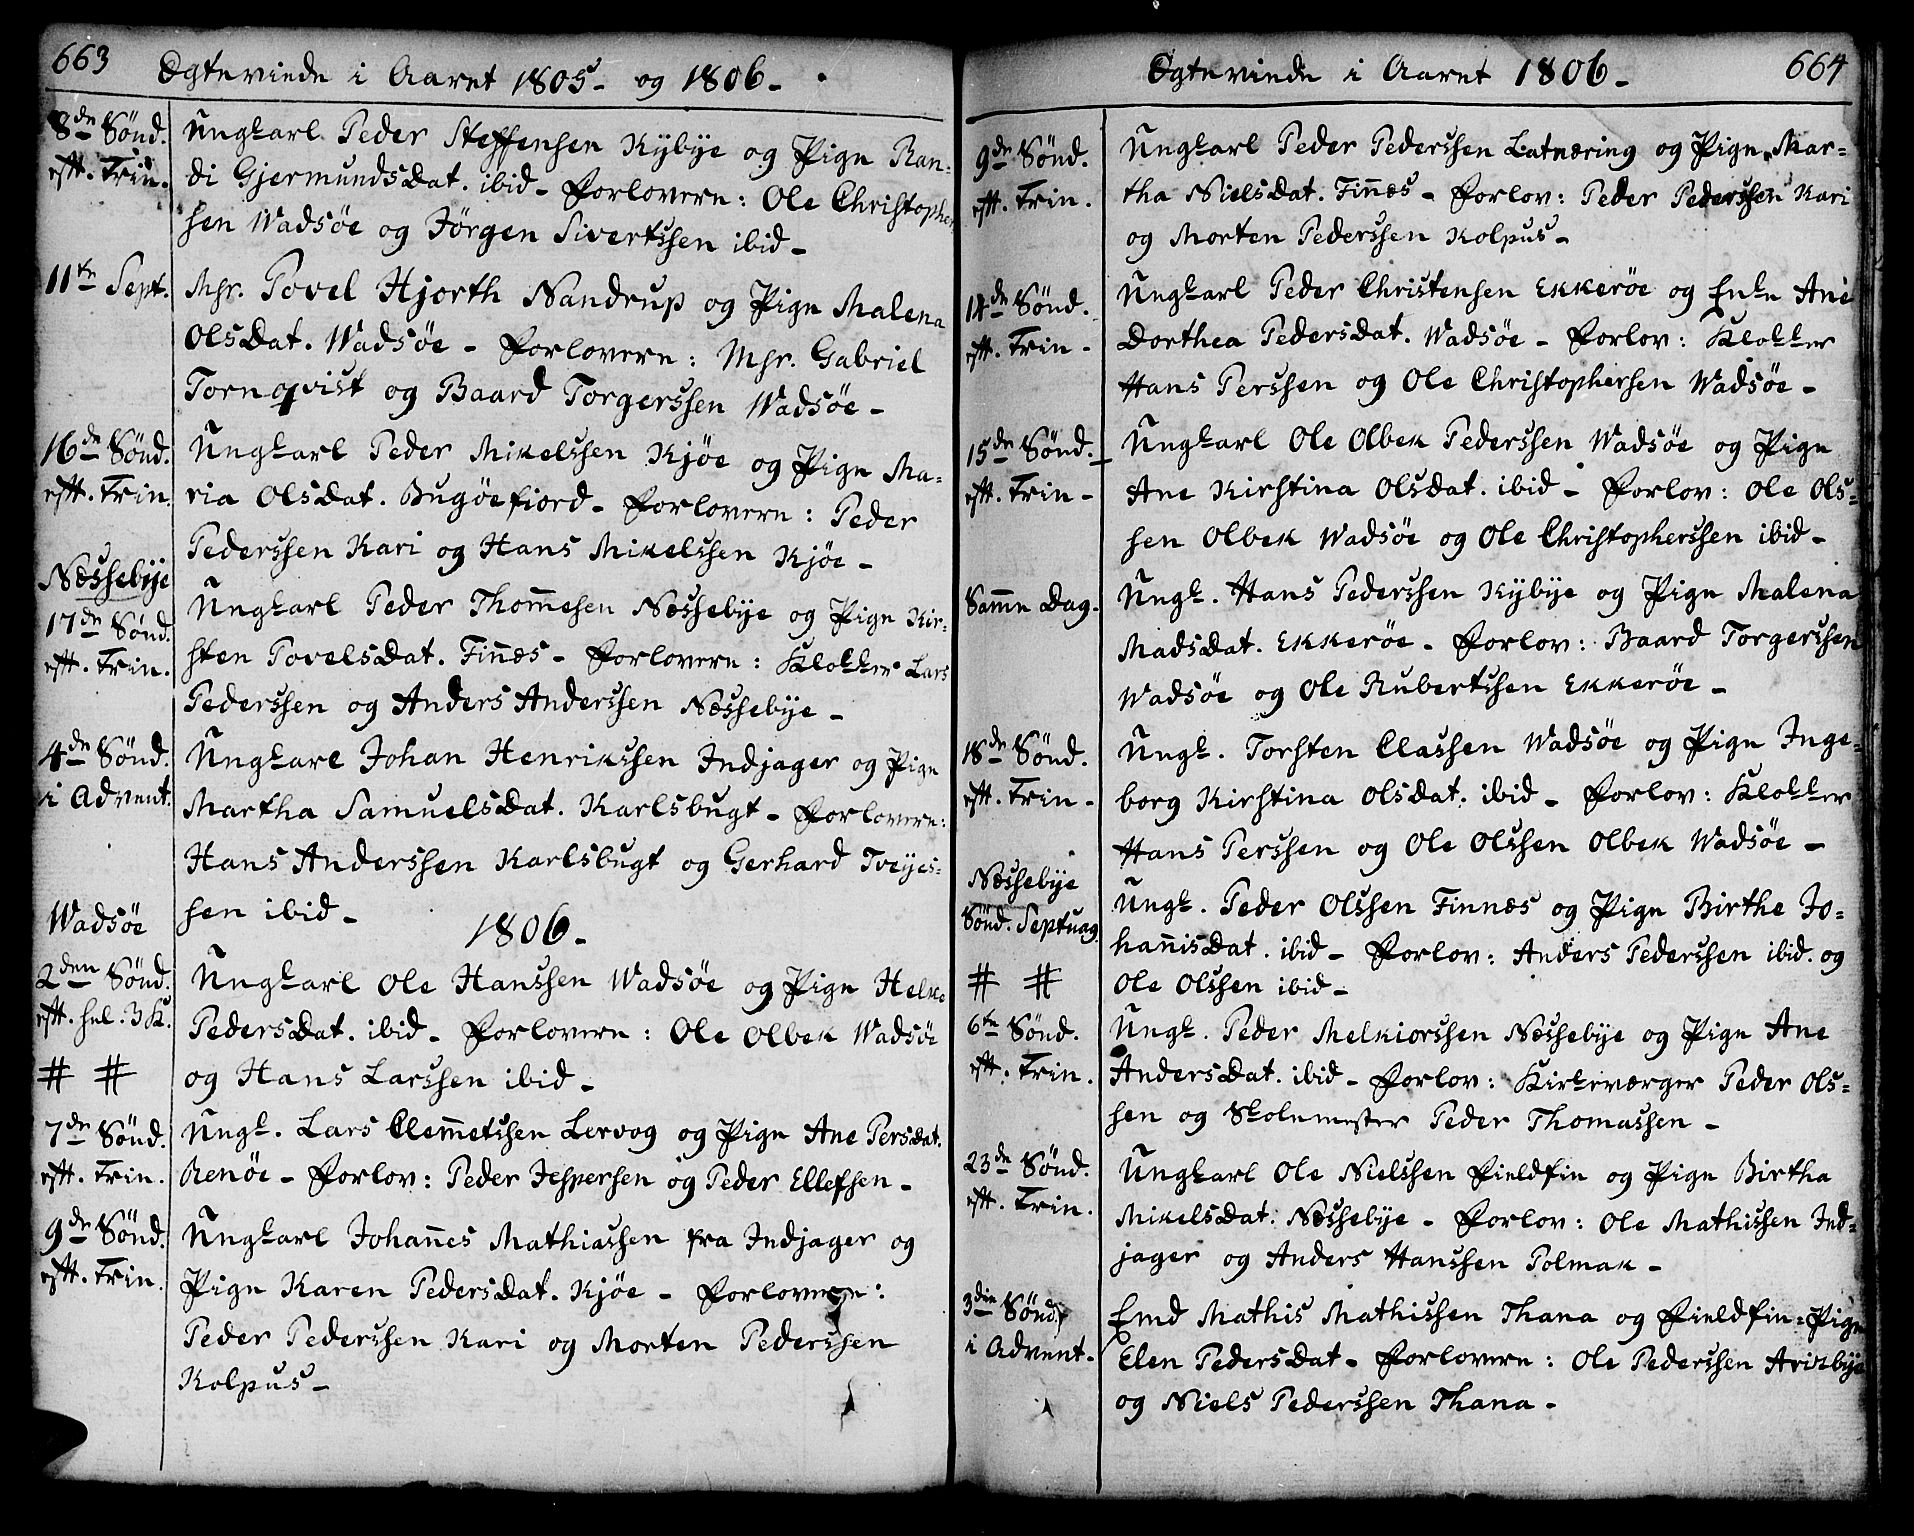 663
Egteviede i Aaret 1805 - og 1806 -
8de Sønd.
eftt. Trin.
Ungkarl Peder Steffensen Kybye og Pige Ran-
di Gjermundsdat. ibid - Forlovere: Ole Christopher
sen Wadsöe og Jörgen Sivertssen ibid -
11te Sept.
Msr. Povel Hjorth Nandrup og Pige Malena
Olsdat. Wadsöe - Forlovere: Msr. Gabriel
Tornqvist og Baard Torgerssen Wadsöe -
16de Sønd.
eftt. Trin
Ungkarl Peder Mikelssen Kjöe og Pige Ma-
ria Olsdat. Bugöefiord - Forlovere: Peder
Pederssen Kari og Hans Mikelssen Kjöe -
Næssebye
17de Sønd.
eftt. Trin.
Ungkarl Peder Thomesen Næssebye og Pige Kir-
sten Povelsdat. Finæs - Forlovere: Klokker Lars
Pederssen og Anders Anderssen Næssebye -
4de Sønd.
i Advent.
Ungkarl Johan Henrikssen Indjager og Pige
Martha Samuelsdat. Karlsbugt - Forlovere:
Hans Anderssen Karlsbugt og Gerhard Tveyes-
sen ibid -
1806 -
Wadsöe
2den Sønd.
eftt. hel. 3 K.
# #
Ungkarl Ole Hanssen Wadsöe og Pige Helke
Pedersdat. ibid - Forlovere: Ole Olbek Wadsöe
og Hans Larssen ibid -
7de Sønd.
eftt. Trin.
Ungk. Lars Clemetssen Lervog og Pige Ane Persdat.
Renöe - Forlov: Peder Jespersen og Peder Ellefsen -
9de Sønd.
eftt. Trin.
Ungkarl Johanes Mathiassen fra Indjager og
Pige Karen Pedersdat. Kjöe - Forlovere:
Peder Pederssen Kari og Morten Pederssen
Kolpus -
664
Egteviede i Aaret 1806 -
9de Sønd.
eftt. Trin.
Ungkarl Peder Pederssen Latnæring og Pige Mar-
tha Nielsdat. Finæs - Forlov: Peder Pederssen Kari
og Morten Pederssen Kolpus -
14de Sønd.
eftt. Trin -
Ungkarl Peder Christensen Ekkeröe og Enke Ane
Dorthea Pedersdat. Wadsöe - Forlov: Klokker
Hans Perssen og Ole Christophersen Wadsöe -
15de Sønd.
eftt. Trin -
Ungkarl Ole Olbek Pederssen Wadsöe og Pige
Ane Kirstina Olsdat. ibid - Forlov: Ole Ols-
sen Olbek Wadsöe og Ole Christopherssen ibid -
Samme Dag.
Ungk. Hans Pederssen Kybye og Pige Malena
Madsdat. Ekkeröe - Forlov: Baard Torgerssen
Wadsöe og Ole Rubertssen Ekkeröe -
18de Sønd.
eftt. Trin -
Ungk. Torsten Classen Wadsöe og Pige Inge-
borg Kirstina Olsdat. ibid - Forlov: Klokker
Hans Perssen og Ole Olssen Olbek Wadsöe -
Næssebye
Sønd. Septuag.
# #
Ungk. Peder Olssen Finnæs og Pige Birthe Jo-
hanisdat. ibid - Forlov: Anders Pederssen ibid. og
Ole Olssen ibid -
6te Sønd.
eftt. Trin.
Ungk. Peder Melkiorssen Næssebye og Pige Ane
Andersdat. ibid - Forlov: Kirkeværger Peder Ols-
sen og Skolemester Peder Thomassen -
23de Sønd.
eftt. Trin.
Ungkarl Ole Nielssen Fieldfin og Pige Birtha
Mikelsdat. Næssebye - Forlov: Ole Mathissen Ind-
jager og Anders Hanssen Polmak -
3die Sønd.
i Advent -
Emd Mathis Mathissen Thana og Fieldfin-Pige
Elen Pedersdat - Forlovere: Ole Pederssen
og Niels Pederssen Thana -